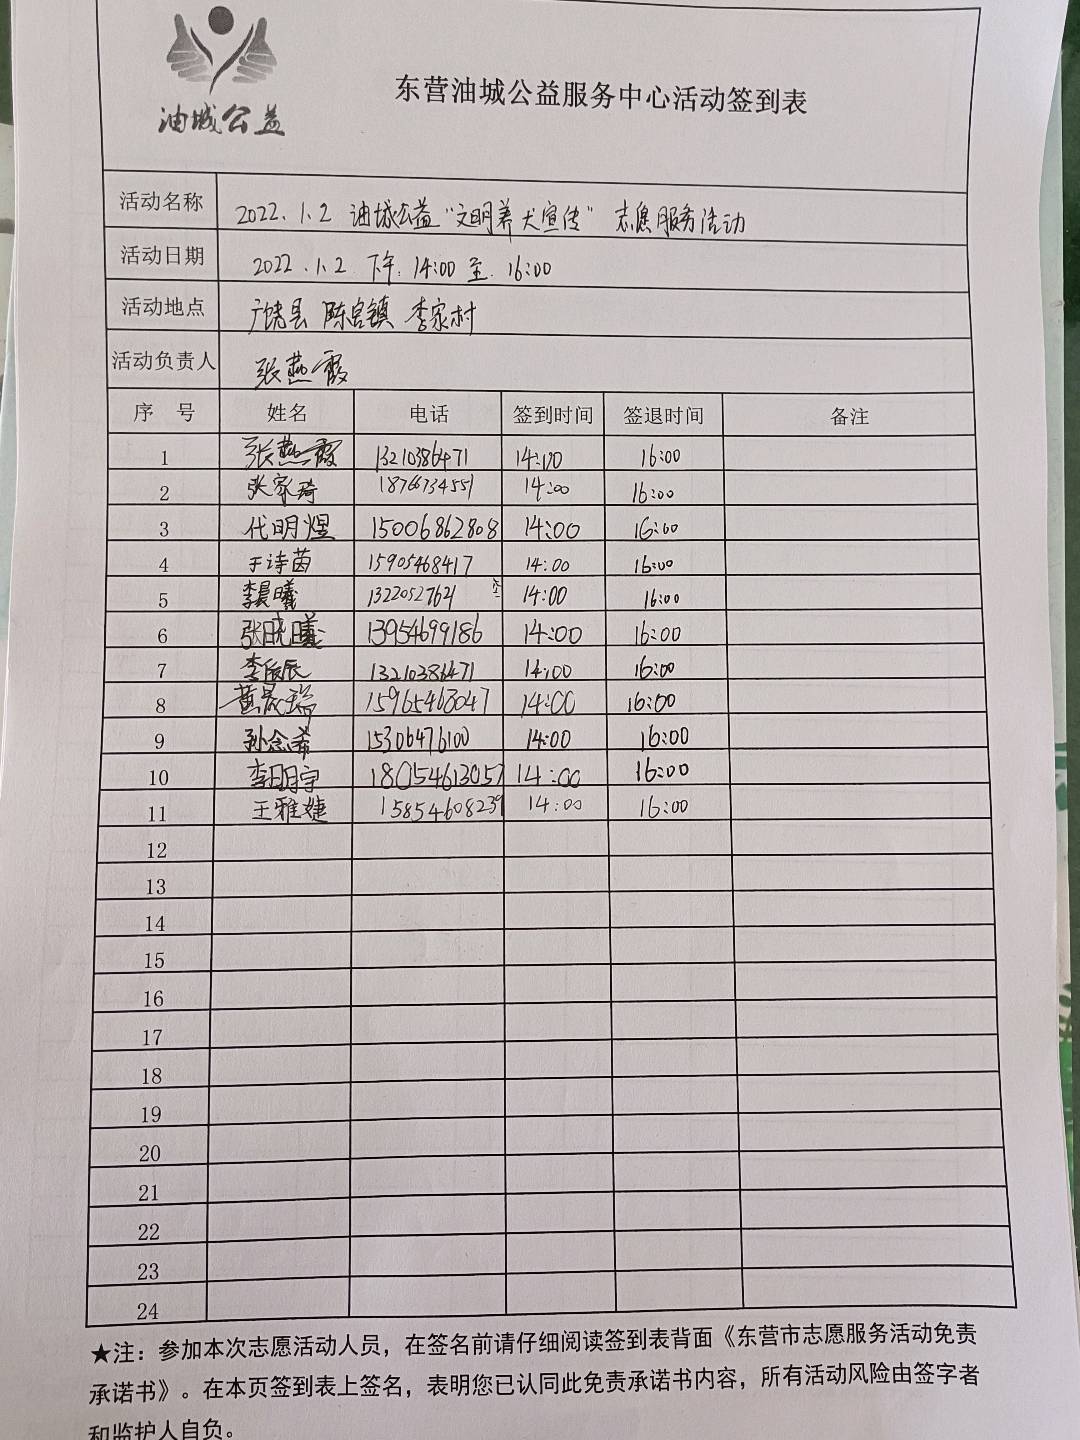 油城公益
东营油城公益服务中心活动签到表
活动名称 2022.1.2 油城公益“文明养犬宣传”志愿服务活动
活动日期 2022.1.2 下午.14:00 至.16:00
活动地点 广饶县 陈官镇 李家村
活动负责人 张燕霞
序 号 姓名 电话 签到时间 签退时间 备注
1 张燕霞 13210386471 14:00 16:00
2 张家琦 18766734551 14:00 16:00
3 代明煜 15006862808 14:00 16:00
4 于诗茵 15905468417 14:00 16:00
5 李晨曦 1322052762 14:00 16:00
6 张晓曦 13954699186 14:00 16:00
7 李辰 13210386471 14:00 16:00
8 黄晟瑞 15965468047 14:00 16:00
9 孙念希 15306476100 14:00 16:00
10 李明宇 18054613057 14:00 16:00
11 王雅婕 15854608239 14:00 16:00
12
13
14
15
16
17
18
19
20
21
22
23
24
★注：参加本次志愿活动人员，在签名前请仔细阅读签到表背面《东营市志愿服务活动免责
承诺书》。在本页签到表上签名，表明您已认同此免责承诺书内容，所有活动风险由签字者
和监护人自负。